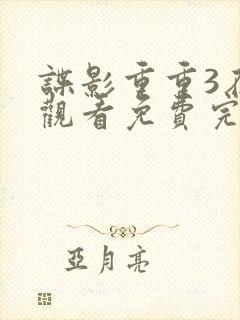 諜影重重3
觀看免費完
亞月亮